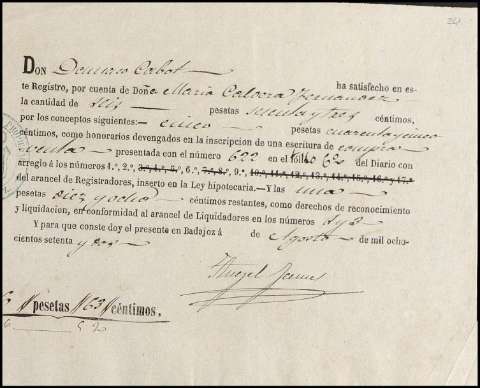 241
DON Domaso Cabot
ha satisfecho en es-
te Registro, por cuenta de Doña Maria Calvera Fernandez
la cantidad de seis pesetas sesenta y tres céntimos,
por los conceptos siguientes: cinco pesetas cuarenta y cinco
céntimos, como honorarios devengados en la inscripcion de una escritura compra
venta presentada con el número 622 en el fólio 62 del Diario con
arreglo á los números 1.º, 2.º, 3.º, 4.º, 5.º, 6.º, 7.º, 8.º, 9.º, 10.º, 11.º, 12.º, 13.º, 14.º, 15.º, 16.º y 17.º
del arancel de Registradores, inserto en la Ley hipotecaria.—Y las una
pesetas diez y ocho céntimos restantes, como derechos de reconocimiento
y liquidacion, en conformidad al arancel de Liquidadores en los números 1 y 2
Y para que conste doy el presente en Badajoz á de Agosto de mil ocho-
cientos setenta y dos
6 pesetas 63 céntimos.